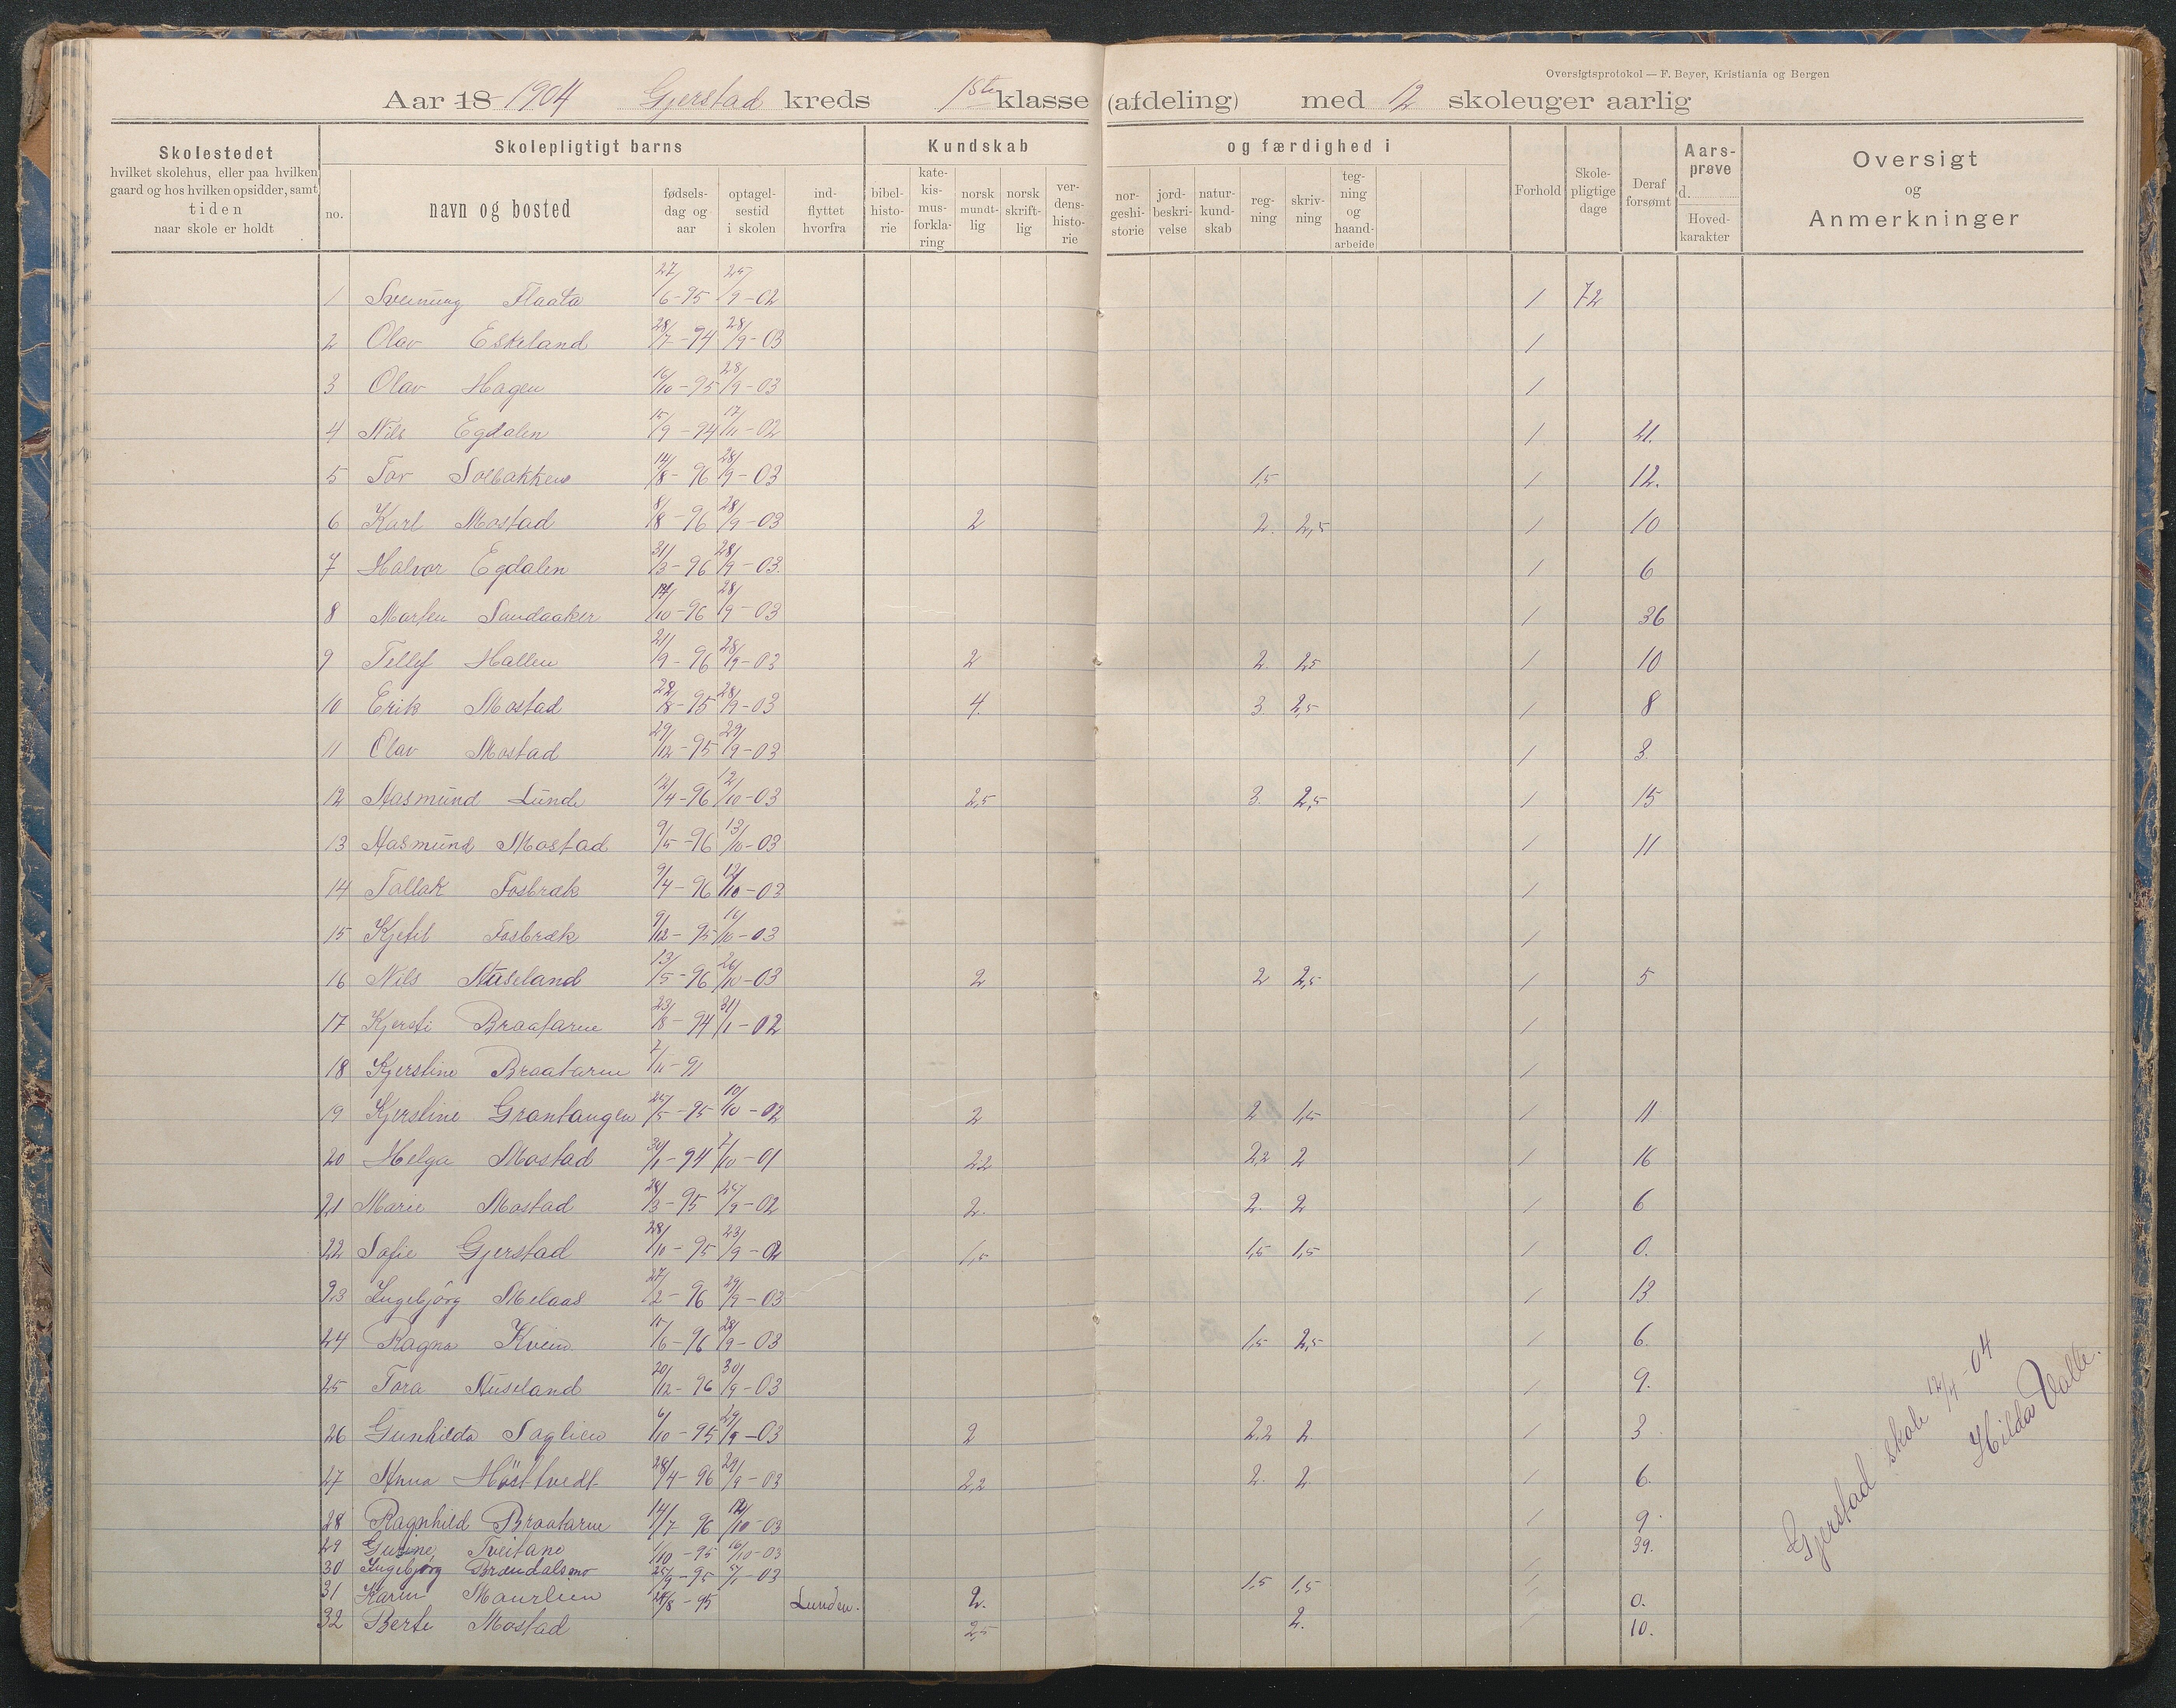 Oversigtsprotokol — F. Beyer, Kristiania og Bergen
Aar 18 1904 Gjerstad kreds 1ste klasse (afdeling) med 12 skoleuger aarlig
Skolestedet
hvilket skolehus, eller paa hvilken
gaard og hos hvilken opsidder, samt
tiden
naar skole er holdt
Skolepligtigt barns
no.
navn og bosted
fødsels-
dag og
aar
optagel-
sestid
i skolen
ind-
flyttet
hvorfra
Kundskab
bibel-
histo-
rie
kate-
kis-
mus-
forkla-
ring
norsk
mundt-
lig
norsk
skrift-
lig
ver-
dens-
histo-
rie
og færdighed i
nor-
geshi-
storie
jord-
beskri-
velse
natur-
kund-
skab
reg-
ning
skriv-
ning
teg-
ning
og
haand-
arbeide
Forhold
Skole-
pligtige
dage
Deraf
forsømt
Aars-
prøve
d.
Hoved-
karakter
Oversigt
og
Anmerkninger
1 Sveinung Flaata 27/6-95 25/9-02 1 72
2 Olav Eskeland 28/7-94 28/9-03 1
3 Olav Hagen 10/10-95 28/9-03 1
4 Nils Egdalen 15/9-94 17/11-02 1 21.
5 Tor Solbakken 14/8-96 28/9-03 1,5 1 12.
6 Karl Mostad 8/8-96 28/9-03 2 2. 2,5 1 10
7 Halvor Egdalen 31/3-96 28/9-03. 1 6
8 Marten Sandaaker 14/10-96 28/9-03 1 36
9 Tellef Hallen 21/9-96 28/9-03 2 2. 2,5 1 10
10 Erik Mostad 22/8-95 28/9-03 4. 3. 2,5 1 8
11 Olav Mostad 29/12-95 29/9-03 1 3.
12 Aasmund Lunde 12/4-96 12/10-03 2,5 3. 2,5 1 15
13 Aasmund Mostad 9/5-96 13/10-03 1 11
14 Tallak Fosbræk 9/4-96 12/10-03 1
15 Kjetil Fosbræk 9/12-95 16/10-03 1
16 Nils Auseland 13/5-96 26/10-03 2 2 2,5 1 5
17 Kjersti Braatarne 23/8-94 31/1-02 1
18 Kjerstine Braatarne 7/11-91 1
19 Kjerstine Grantangen 25/5-95 10/10-02 2 2 1,5 1 11
20 Helga Mostad 30/1-94 7/10-01 2,2 2,2 2 1 16
21 Marie Mostad 28/3-95 25/9-02 2. 2. 2 1 6
22 Sofie Gjerstad 28/10-95 23/9-02 1,5 1,5 1,5 1 0.
23 Ingebjörg Melaas 27/2-96 29/9-03 1 13
24 Ragna Kveim 15/6-96 28/9-03 1,5 2,5 1 6.
25 Tora Auseland 20/12-96 30/9-03 1 9.
26 Gunhilda Saglien 6/10-95 29/9-03 2 2,2 2 1 3
27 Anna Hösttvedt 28/4-96 29/9-03 2,2 2. 2 1 6.
28 Ragnhild Braatarne 14/7 96 12/10-03 1 9.
29 Gusine Tveitane 1/10-95 16/10-03 39.
30 Ingebjørg Brændalsmo 25/9-95 5/1-03 1
31 Karen Maurlien 24/8-95 Lunden. 2. 1,5 1,5 1 0.
32 Berte Mostad 2,5 2. 1 10.
Gjerstad skole 12/4-04
Hilda Valle.